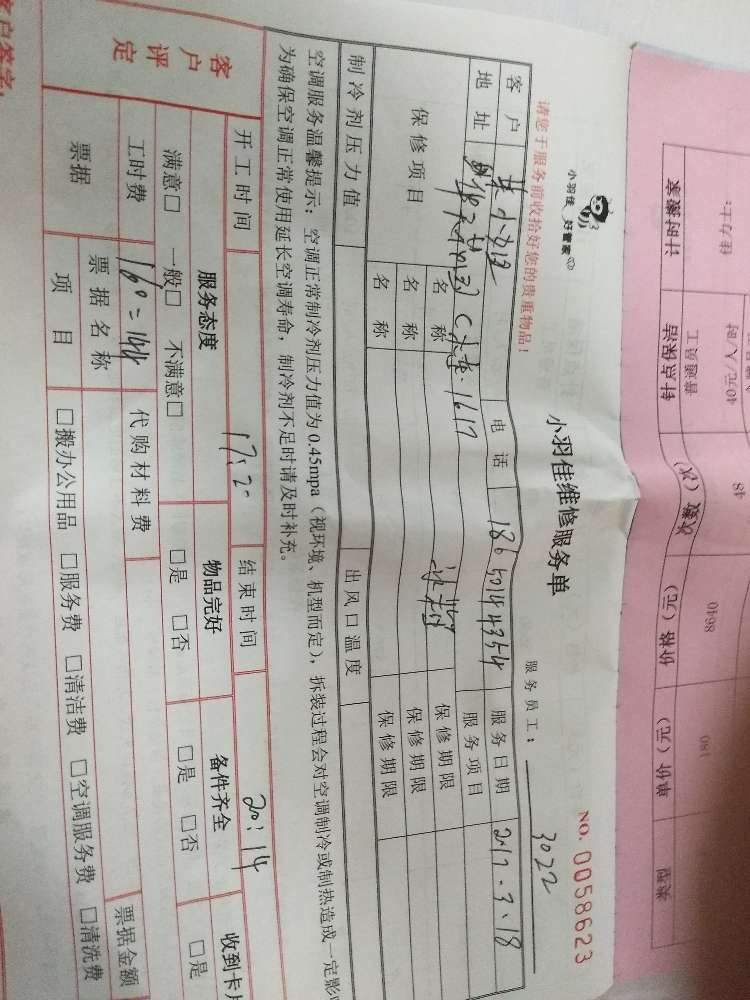 小羽佳 好管家
小羽佳维修服务单
NO. 0058623
请您于服务前收拾好您的贵重物品!
服务员工: 3022
客户 电话 186 5014 4354 服务日期 217.3.18
地址 C 1617 服务项目
保修项目 名称 保修期限
名称 保修期限
名称 保修期限
制冷剂压力值 出风口温度
空调服务温馨提示:空调正常制冷剂压力值为0.45mpa(视环境、机型而定),拆装过程会对空调制冷或制热造成一定影
为确保空调正常使用延长空调寿命,制冷剂不足时请及时补充。
开工时间 17:20 结束时间 20:14
客户评定 服务态度 物品完好 备件齐全 收到卡
满意□ 一般□ 不满意□ □是 □否 □是 □否 □是
工时费 160=144 代购材料费
票据 票据名称 票据金额
项目 □搬办公用品 □服务费 □清洁费 □空调服务费 □清洗费
客户签字:
类型 单价(元) 价格(元) 次数(次)
180 8640 48
计时搬家
普通员工
40元/人/时